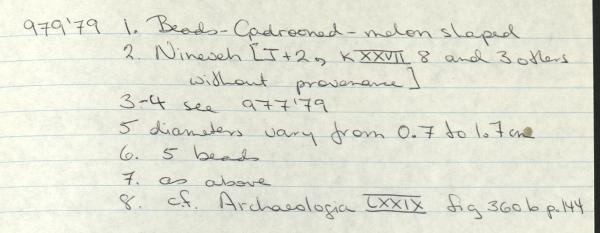 979'79 1. Beads - Gadrooned - melon shaped
2. Nineveh [T+2, K XXVII 8 and 3 others
without provenance]
3-4 see 977'79
5 diameters vary from 0.7 to 1.7 cm
6. 5 beads
7. as above
8. cf. Archaeologia LXXIX fig 360 b p.144